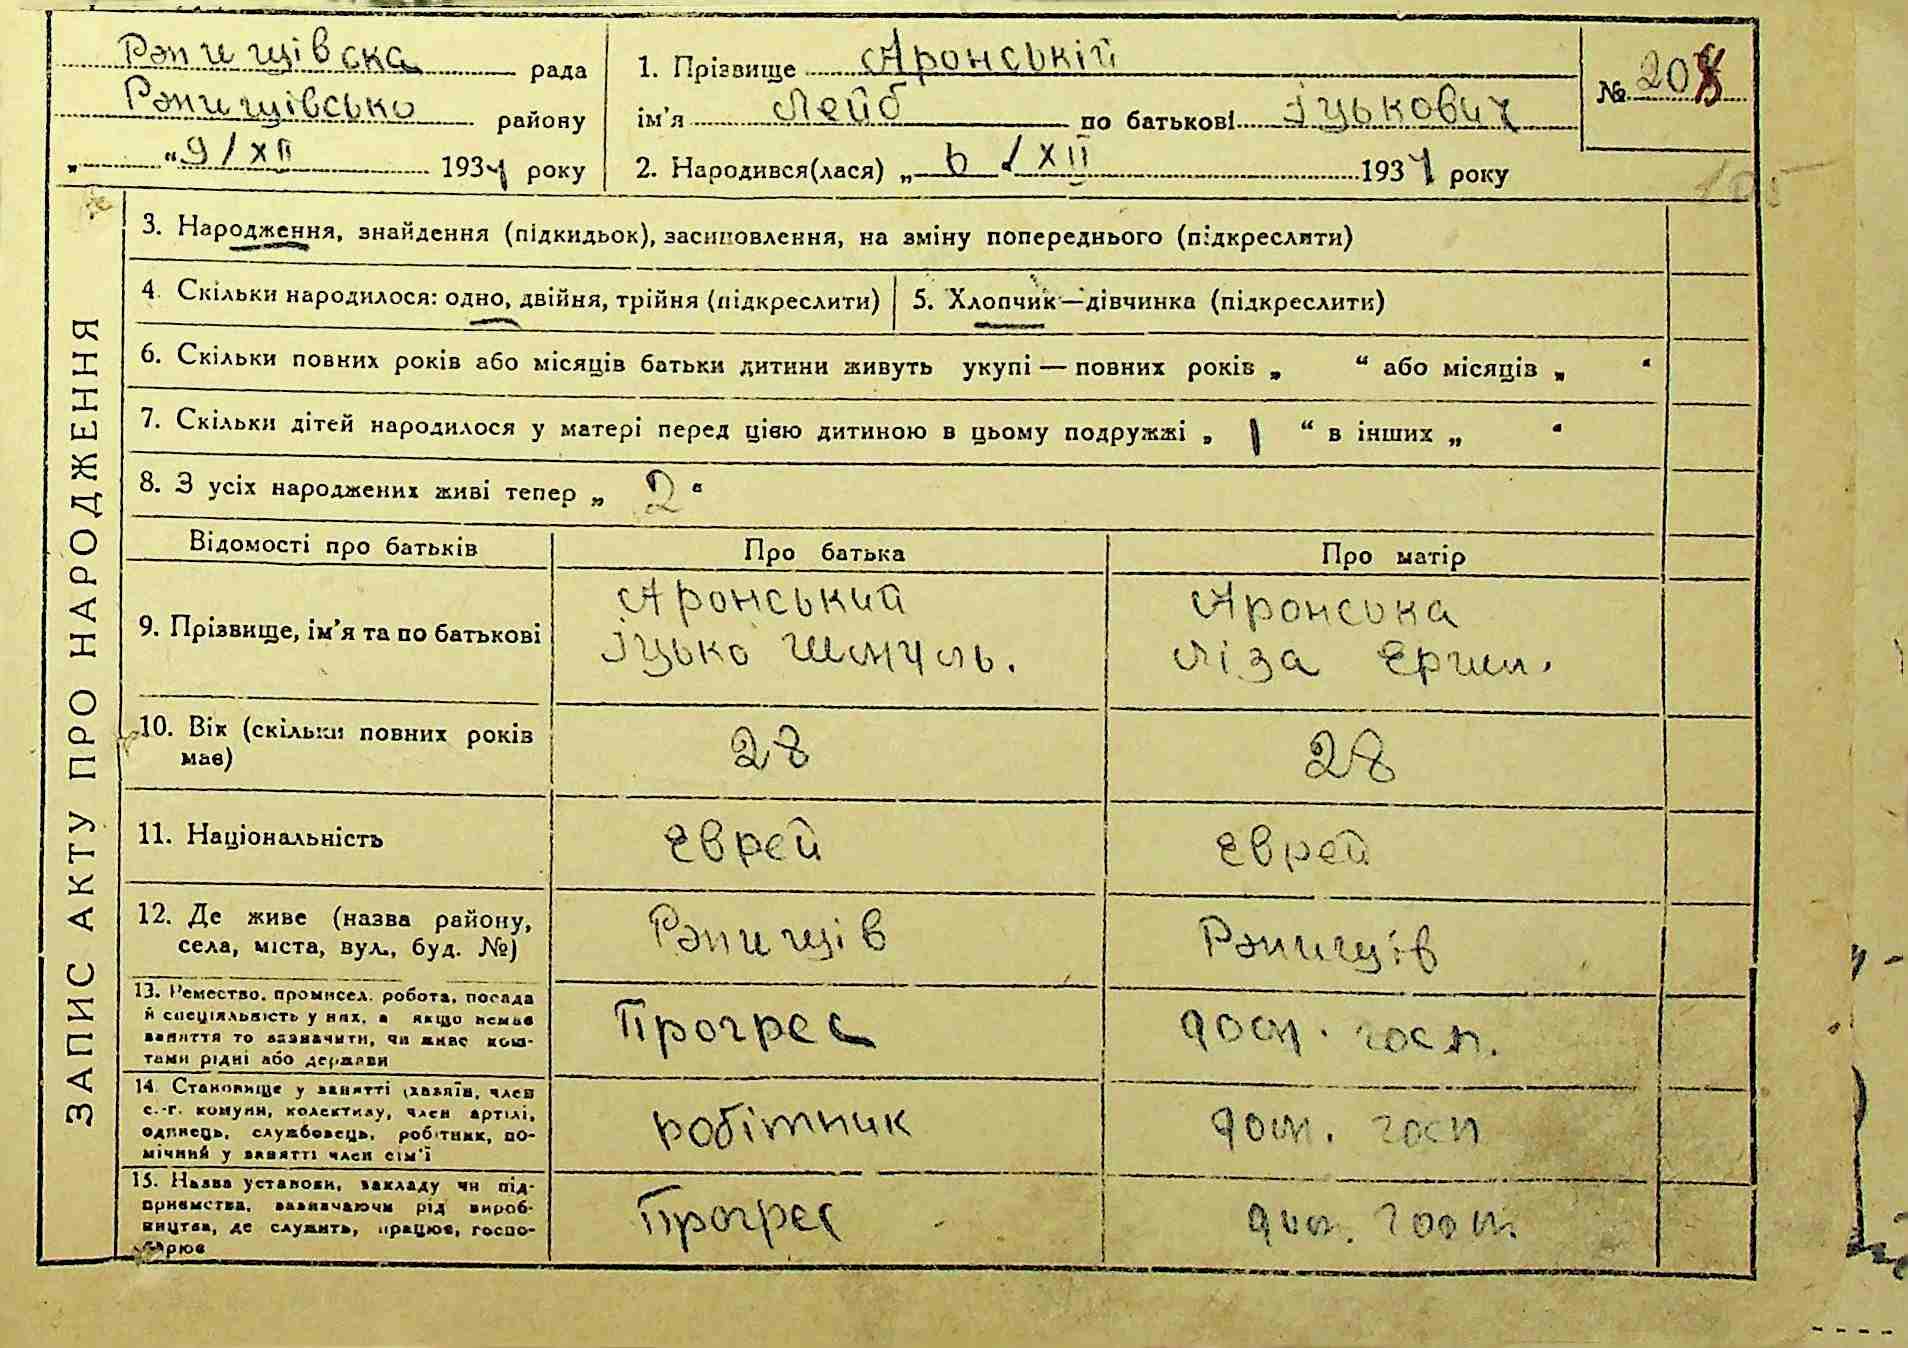 Рэпищівска рада
Рэпищівсько району
„ “ 9/XII 1934 року
1. Прізвище Аронській
ім'я Лейб по батькові Іцькович
2. Народився(лася) „ 6 / XII 1934 року
№ 208
ЗАПИС АКТУ ПРО НАРОДЖЕННЯ
3. Народження, знайдення (підкидьок), засиновлення, на зміну попереднього (підкреслити)
4. Скільки народилося: одно, двійня, трійня (підкреслити)
5. Хлопчик—дівчинка (підкреслити)
6. Скільки повних років або місяців батьки дитини живуть укупі — повних років „ “ або місяців „ “
7. Скільки дітей народилося у матері перед цією дитиною в цьому подружжі „ 1 “ в інших „ “
8. З усіх народжених живі тепер „ 2 “
Відомості про батьків
Про батька
Про матір
9. Прізвище, ім'я та по батькові
Аронський
Іцько Шмуль.
Аронська
Ліза Ершл.
10. Вік (скільки повних років
має)
28
28
11. Національність
Єврей
Єврей
12. Де живе (назва району,
села, міста, вул., буд. №)
Рэпищів
Рэпищів
13. Ремество, промисел, робота, посада
й спеціяльність у них, а якщо немає
заняття то зазначити, чи живе кош-
тами рідні або держави
Прогрес
дом. госп.
14. Становище у занятті (хазяїн, член
с.-г. комуни, колективу, член артілі,
одинець, службовець, робітник, по-
мічний у занятті член сім'ї
робітник
дом. госп
15. Назва установи, закладу чи під-
приємства, зазначаючи рід вироб-
ництва, де служить, працює, госпо-
дарює
Прогрес
дом. госп.